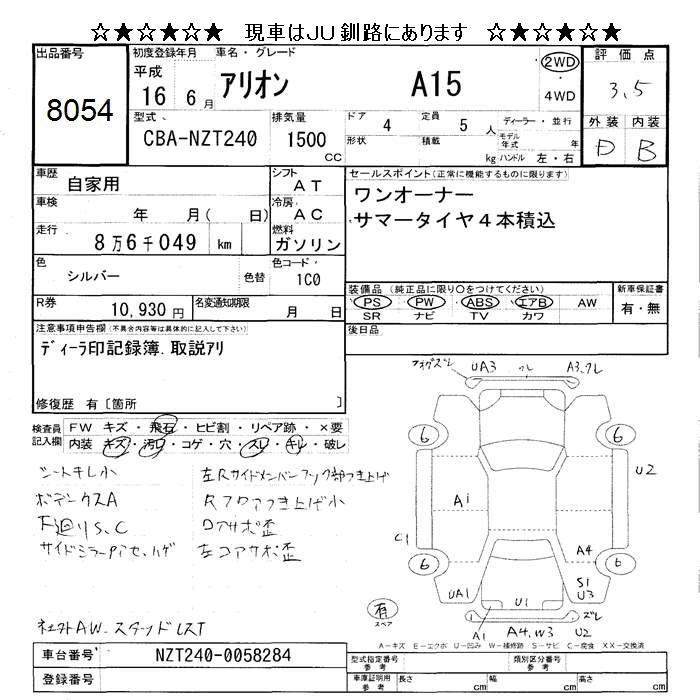 ☆★☆★☆★ 現車はJU釧路にあります ☆★☆★☆★
出品番号
8054
初度登録年月
平成
16 6月
車名・グレード
アリオン A15
2WD
4WD
評価点
3.5
外装 内装
D B
型式
CBA-NZT240
排気量
1500
CC
ドア 4
定員 5 人
形状
積載 kg
ディーラー・並行
モデル年式 年
ハンドル 左・右
車歴
自家用
シフト
AT
車検
年 月( 日)
冷房
AC
走行
8万6千049 km
燃料
ガソリン
色
シルバー
色替
色コード
1C0
R券
10,930円
名変通知期限
月 日
セールスポイント(正常に機能するものに限ります)
ワンオーナー
サマータイヤ4本積込
装備品 (純正品に限り○をつけてください)
PS PW ABS エアB AW
SR ナビ TV カワ
新車保証書
有・無
後日品
注意事項申告欄(不具合内容等は具体的に記入して下さい)
ディーラ印記録簿.取説アリ
修復歴 有〔箇所 〕
検査員記入欄
FW キズ・飛石・ヒビ割・リペア跡・×要
内装 キズ・汚レ・コゲ・穴・スレ・キレ・破レ
シートキレ小
ボデークスA
下廻りS、C
左Rサイドメンバーフック部つき上げ
Rフロアつき上げ小
UA3 クレ A3.クレ
6 6
A1
U2
C1
A4
6 6
UA1
U1
S1
U3
ズレ
A1 A4.W3 U2
有
スペア
A−キズ E−エクボ U−凹み W−補修跡 S−サビ C−腐食 XX−交換済
車台番号
NZT240-0058284
登録番号
型式指定番号
参考
類別区分番号
参考
車庫証明用
参考
長さ cm
幅 cm
高さ cm